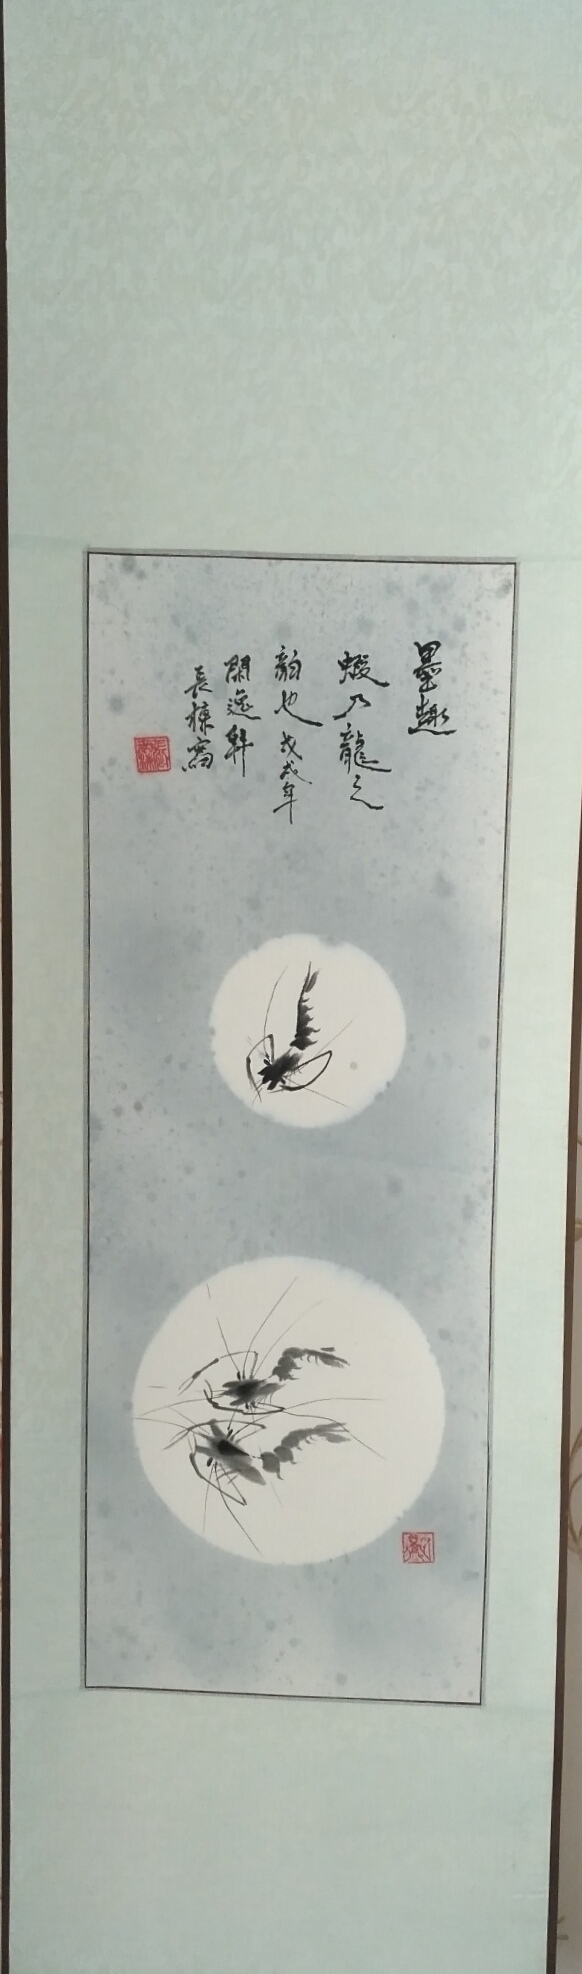 墨趣
蝦乃龍之
韵也戊戌年
閑逸軒
長棟寫